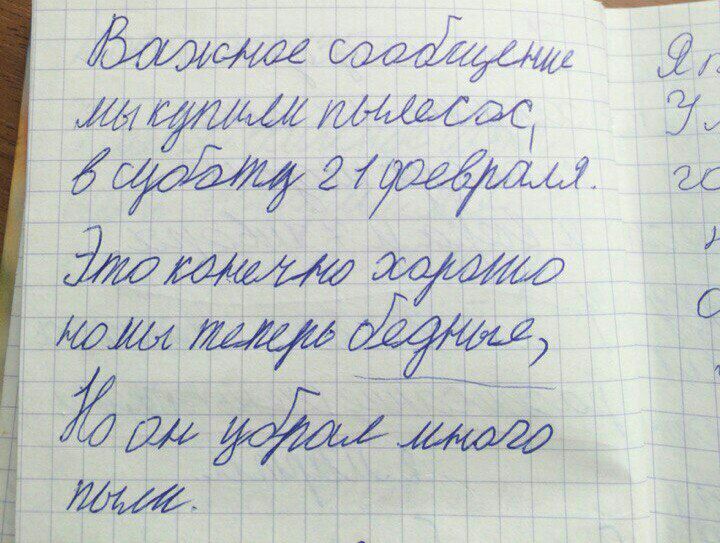 Важное сообщение
мы купили пылесос,
в субботу 21 февраля.
Это конечно хорошо
но мы теперь бедные,
Но он убрал много
пыли.